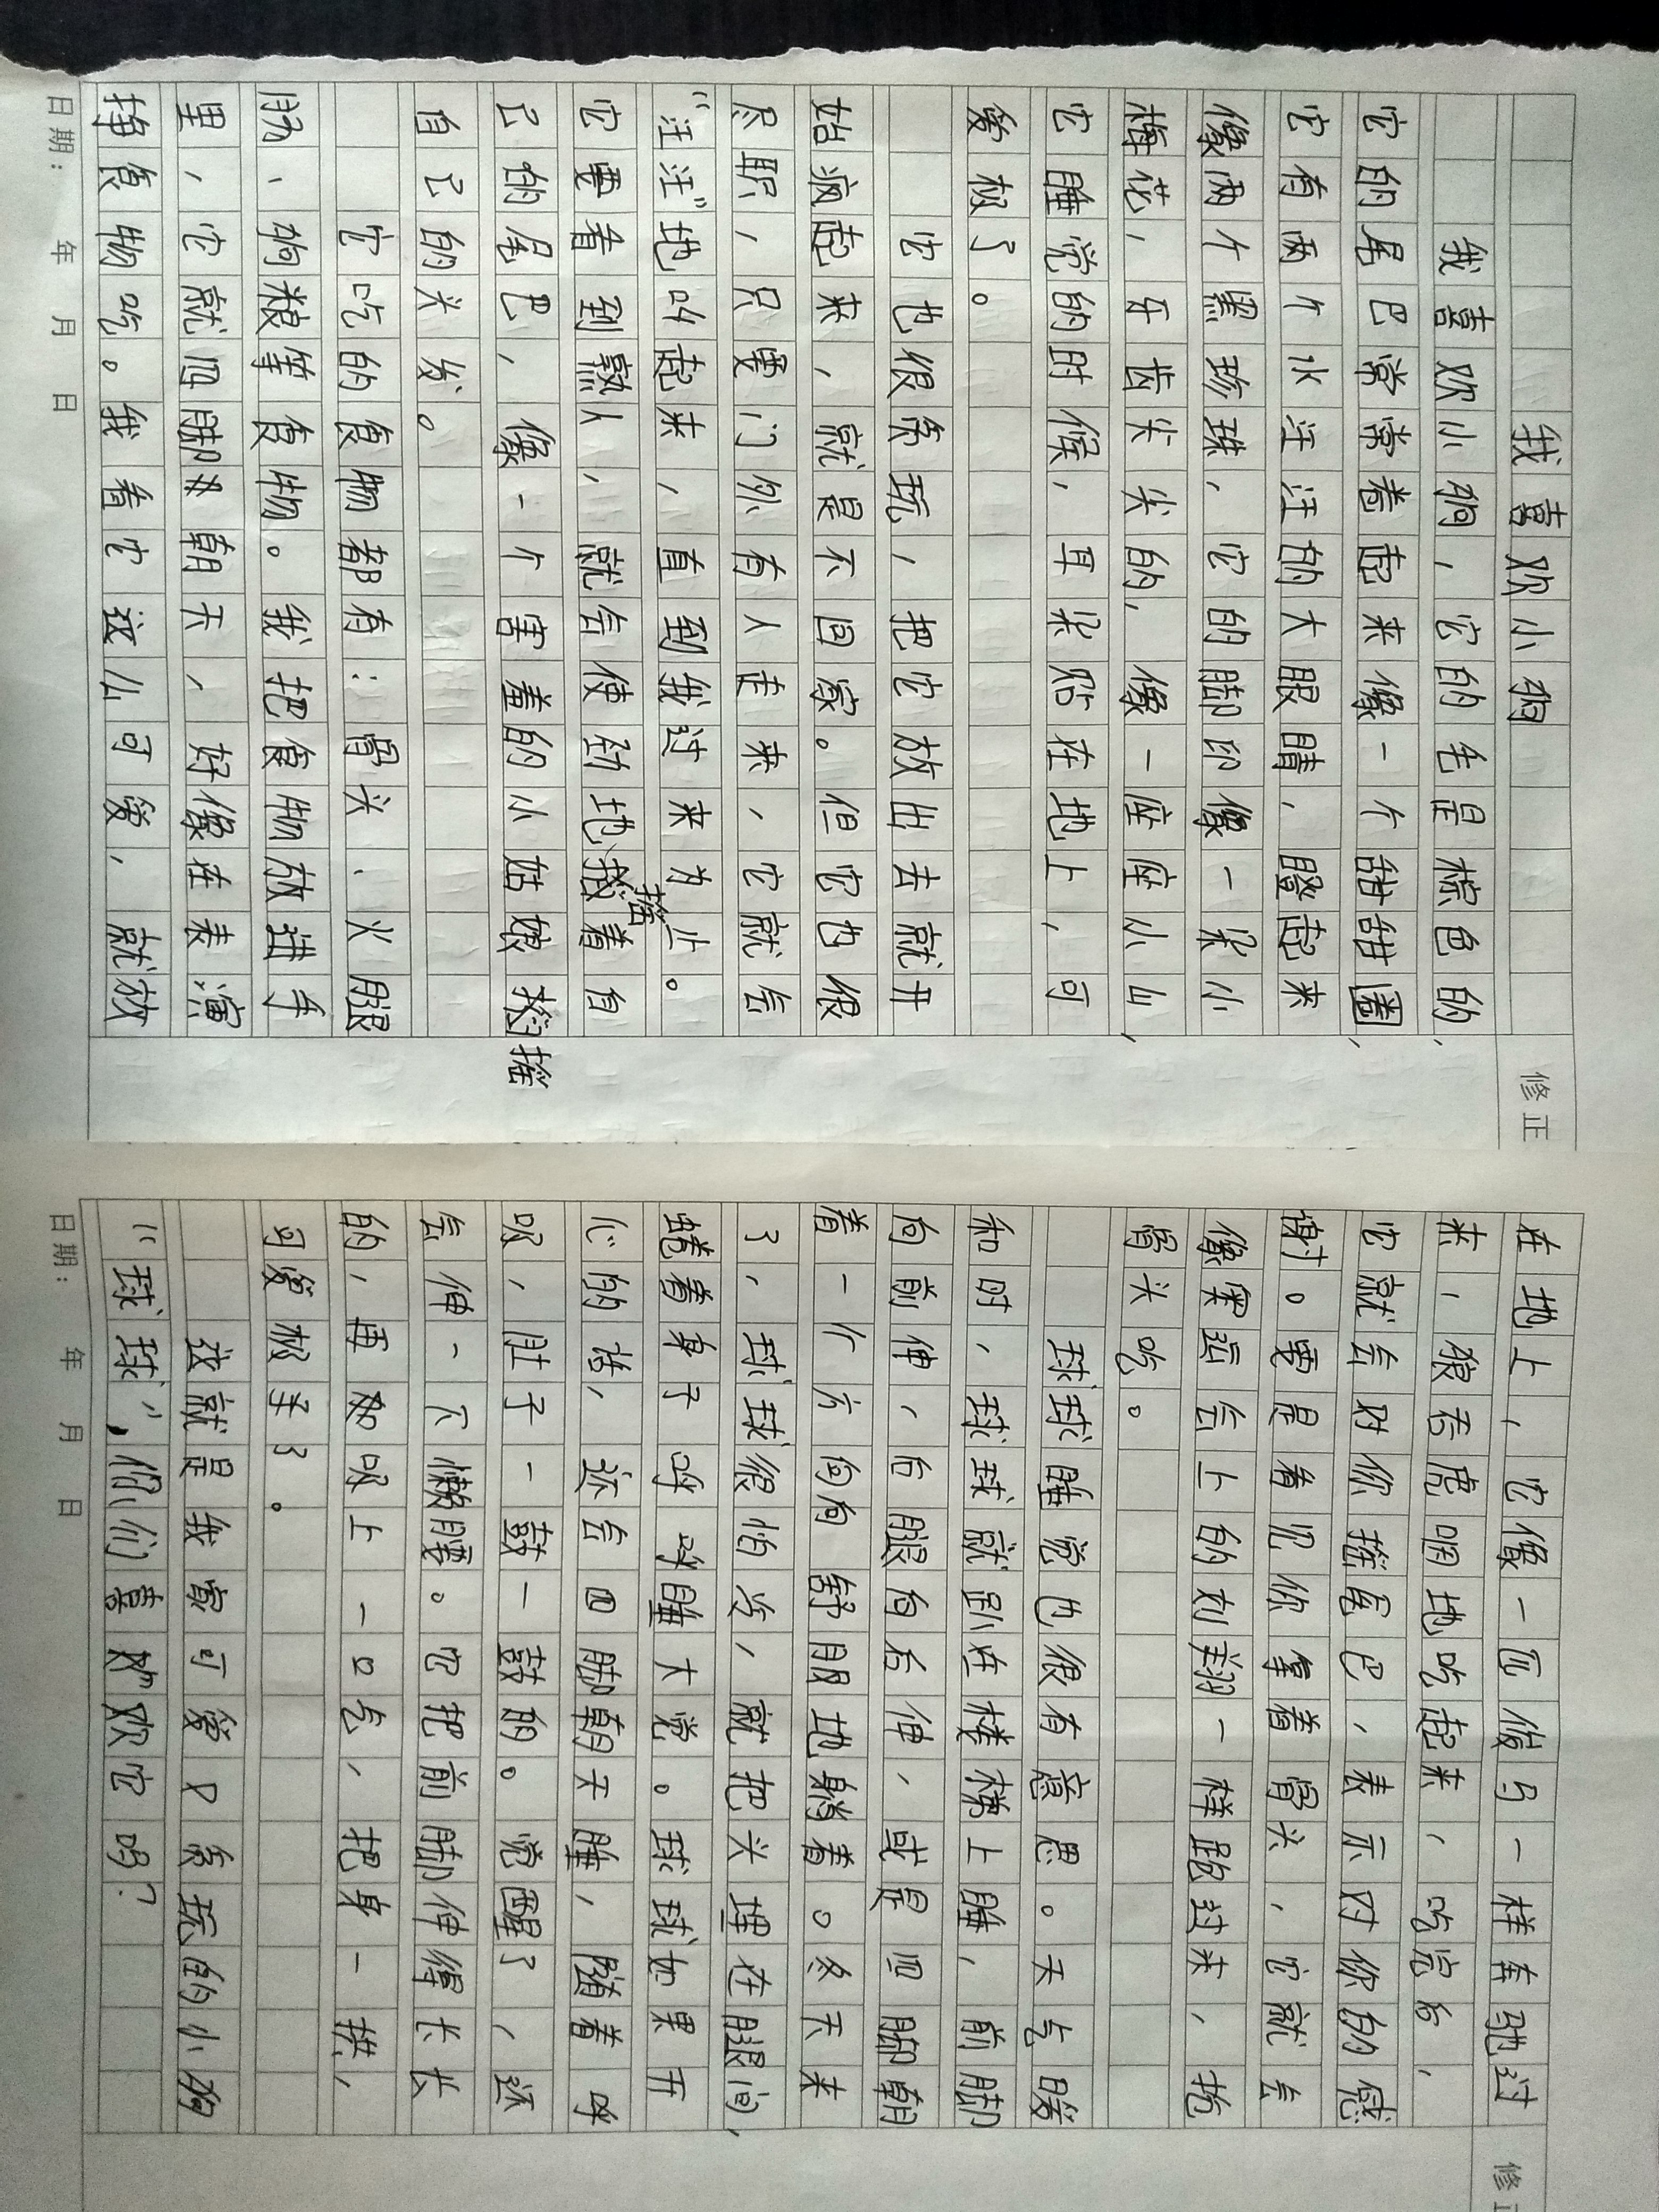 我喜欢小狗
我喜欢小狗，它的毛是棕色的，
它的尾巴常常卷起来像一个甜甜圈，
它有两个水汪汪的大眼睛，瞪起来
像两个黑珍珠，它的脚印像一朵小
梅花，牙齿尖尖的，像一座座小山，
它睡觉的时候，耳朵贴在地上，可
爱极了。
它也很贪玩，把它放出去就开
始疯起来，就是不回家。但它也很
尽职，只要门外有人走来，它就会
“汪汪”地叫起来，直到我过来为止。
它要看到熟人，就会使劲地摇着自
己的尾巴，像一个害羞的小姑娘摇
自己的头发。
它吃的食物都有：骨头、火腿
肠、狗粮等食物。我把食物放进手
里，它就四脚朝天，好像在表演
挣食物吃。我看它这么可爱，就放
日期： 年 月 日
修正
在地上，它像一匹俊马一样奔驰过
来，狼吞虎咽地吃起来，吃完后，
它就会对你摇尾巴，表示对你的感
谢。要是看见你拿着骨头，它就会
像奥运会上的刘翔一样跑过来，抢
骨头吃。
球球睡觉也很有意思。天气暖
和时，球球就趴在楼梯上睡，前脚
向前伸，后腿向后伸，或是四脚朝
着一个方向向舒服地躺着。冬天来
了，球球很怕冷，就把头埋在腿间，
蜷着身子呼呼睡大觉。球球如果开
心的话，还会四脚朝天睡，随着呼
吸，肚子一鼓一鼓的。觉醒了，还
会伸一下懒腰。它把前脚伸得长长
的，再吸上一口气，把身一拱，
可爱极了。
这就是我家可爱又贪玩的小狗
“球球”，你们喜欢它吗？
日期： 年 月 日